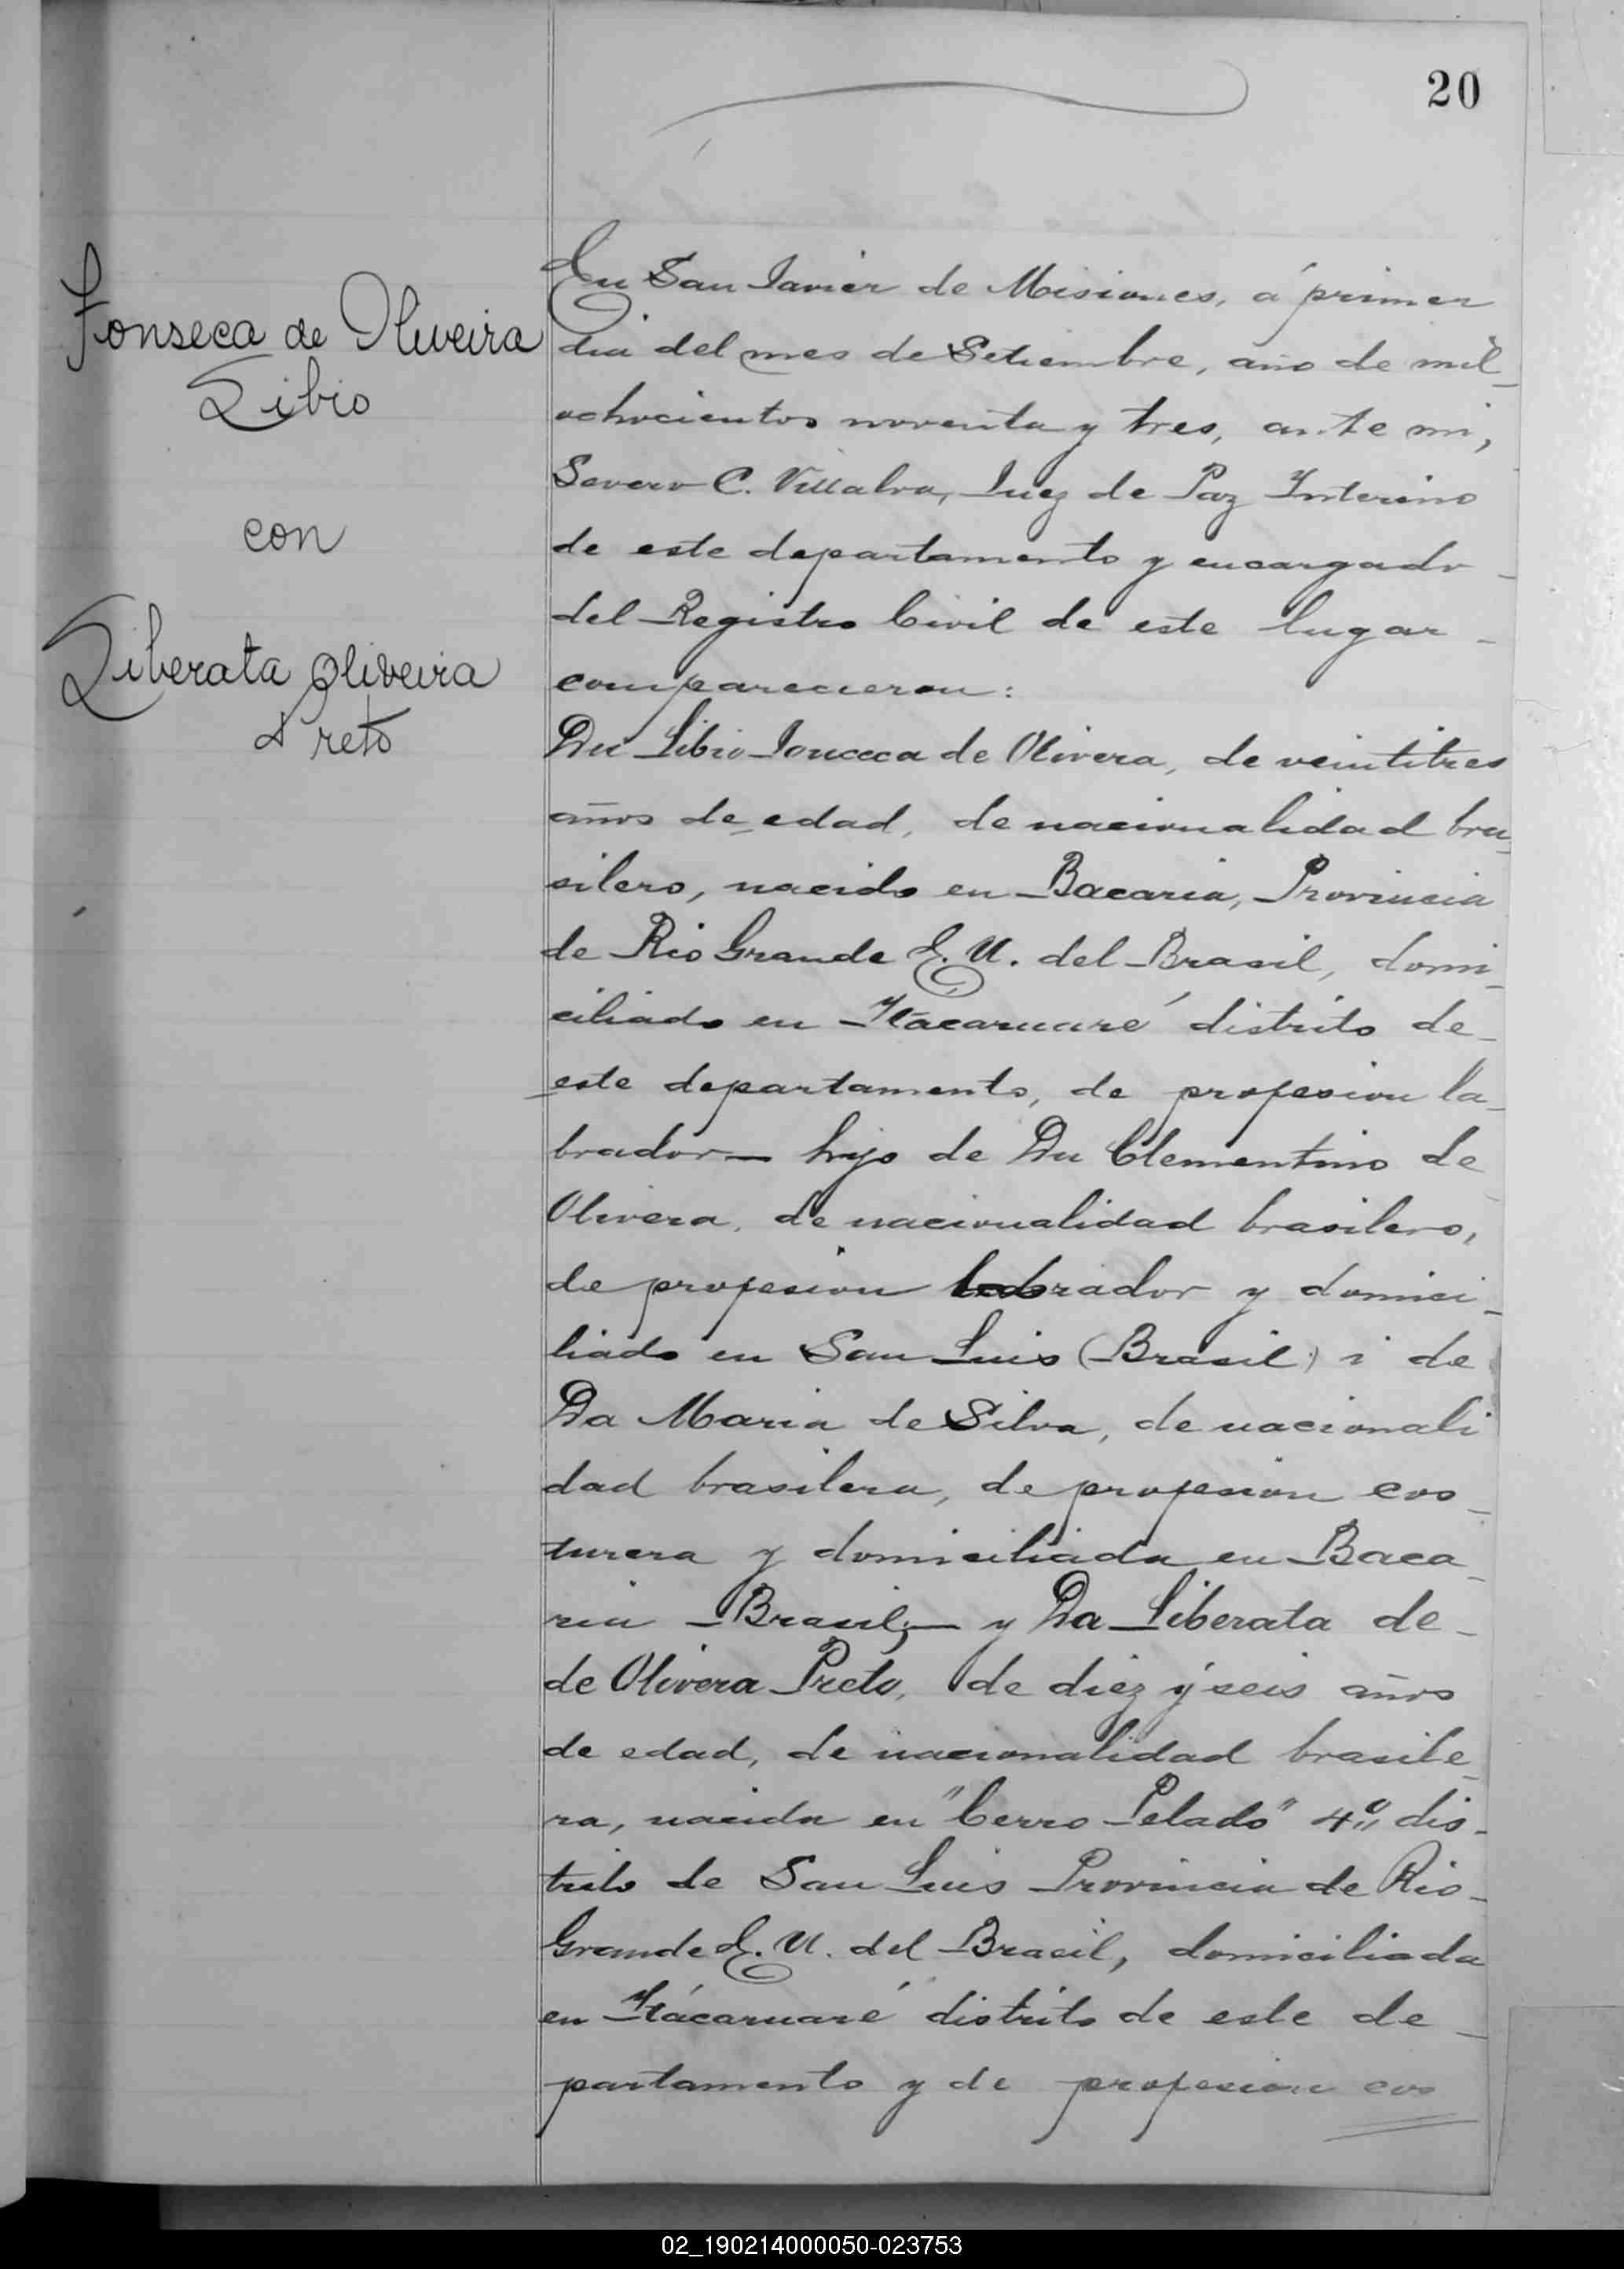 20
Fonseca de Oliveira
Libio
con
Liberata Oliveira
Preto
En San Javier de Misiones, á primer
dia del mes de Setiembre, año de mil
ochocientos noventa y tres, ante mi,
Severo C. Villalva, Juez de Paz Interino
de este departamento y encargado
del Registro Civil de este lugar
comparecieron:
Dn Libio Fonceca de Olivera, de veintitres
años de edad, de nacionalidad bra
silero, nacido en Bacaria, Provincia
de Rio Grande E. U. del Brasil, domi
ciliado en Itacaruaré distrito de
este departamento, de profesion la
brador— hijo de Dn Clementino de
Olivera, de nacionalidad brasilero,
de profesion labrador y domici
liado en San Luis (Brasil) i de
Da Maria de Silva, de nacionali
dad brasilera, de profesion cos
turera y domiciliada en Baca
ria Brasil;— y Da Liberata de
de Olivera Preto, de diez y seis años
de edad, de nacionalidad brasile
ra, nacida en "Cerro Pelado" 4º dis
trito de San Luis Provincia de Rio
Grande E. U. del Bracil, domiciliada
en Itácaruaré distrito de este de
partamento y de profesion cos
02_190214000050-023753